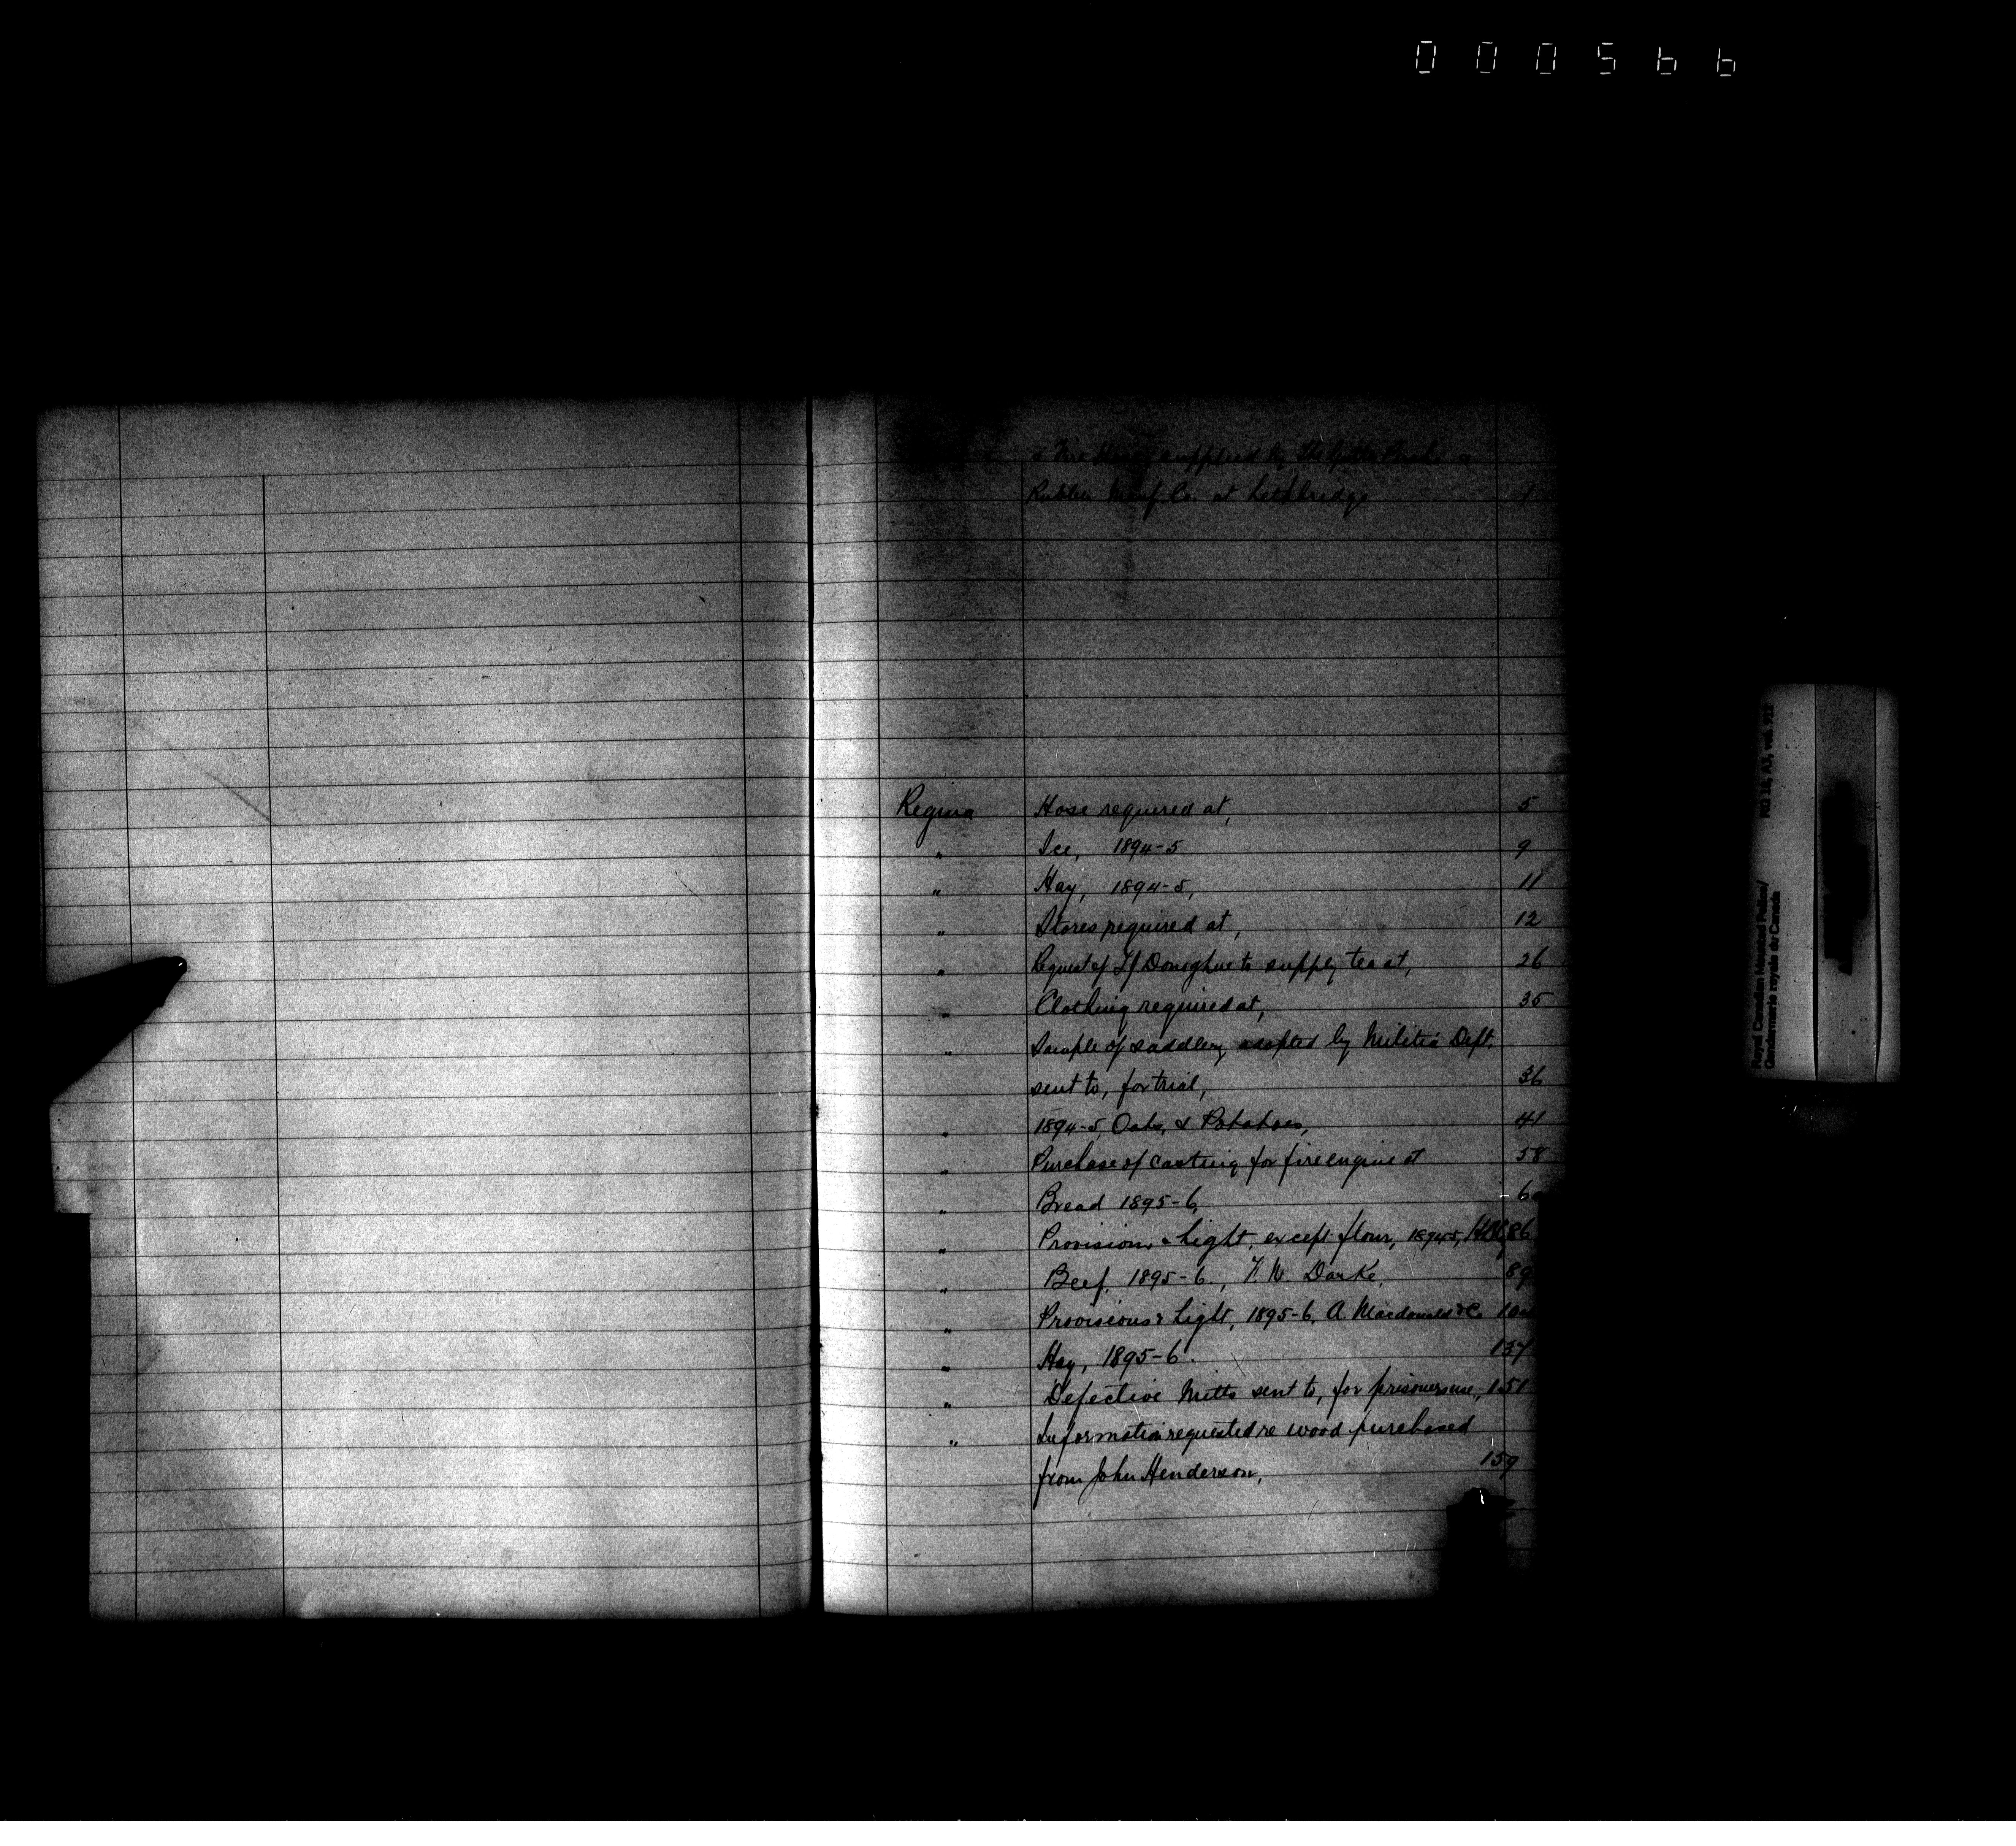 000566
supplied by the
Rubber Manf. Co. at Lethbridge 1
Regina Hose required at, 5
" Ice, 1894-5 9
" Hay, 1894-5, 11
" Stores required at, 12
" Request of Donoghue to supply tea at, 26
" Clothing required at, 35
" Sample of saddlery adopted by Militia Dept.
sent to, for trial, 36
" 1894-5, Oats, & Potatoes, 41
" Purchase of casting for fire engine at 58
" Bread 1895-6,
" Provisions & Light, except flour, 1894-5, 86
" Beef, 1895-6., F. W. Darke, 89
" Provisions & Light, 1895-6, A. Macdonald & Co
" Hay, 1895-6. 137
" Defective Mitts sent to, for prisoners use, 151
" Information requested re wood purchased
from John Henderson, 159
Royal Canadian Mounted Police/
Gendarmerie royale du Canada
RG 18, A3, vol.